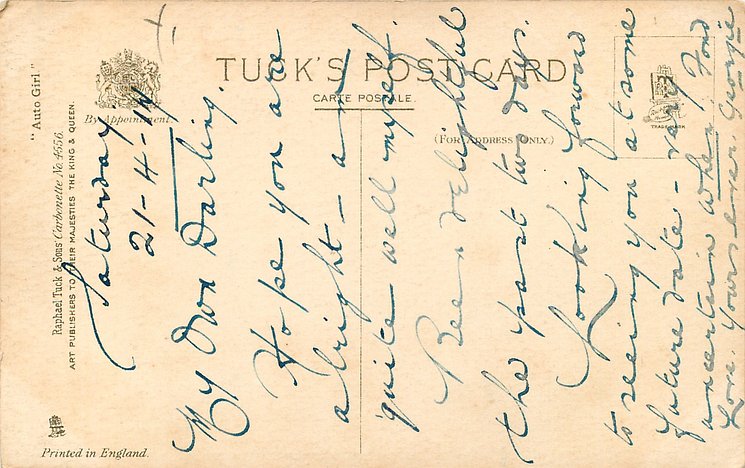 TUCK'S POST CARD
CARTE POSTALE.
(FOR ADDRESS ONLY.)
By Appointment.
TRADE MARK
"Auto Girl."
Raphael Tuck & Sons' Carbonette No. 4556.
ART PUBLISHERS TO THEIR MAJESTIES THE KING & QUEEN.
Printed in England.
Saturday
21-4-
My Own Darling.
Hope you are
alright - am
quite well myself.
Been delightful
the past two days.
Looking forward
to seeing you at some
future date - very
uncertain when. Fond
Love. Yours ever. Georgie